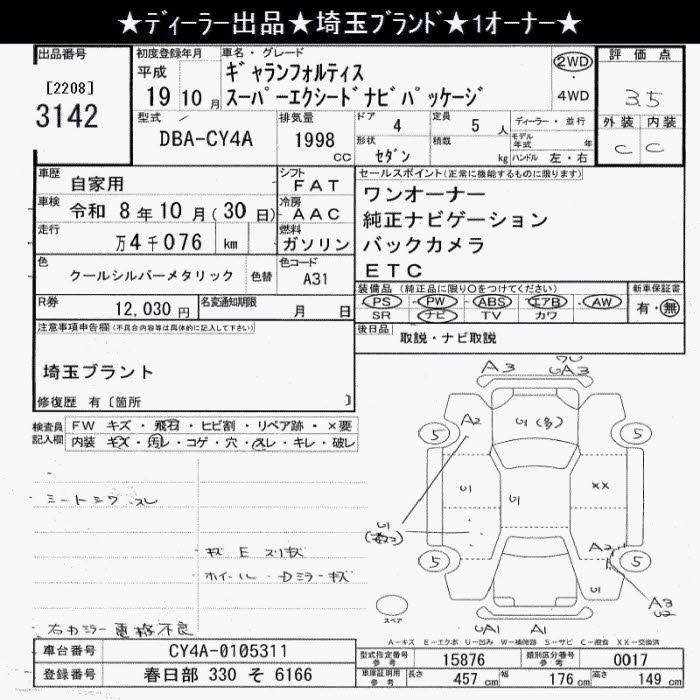 ★ディーラー出品★埼玉ブランド★1オーナー★
出品番号
[2208]
3142
初度登録年月
平成
19 10 月
車名・グレード
ギャランフォルティス
スーパーエクシードナビパッケージ
2WD
・
4WD
評価点
3.5
外装 内装
C C
型式
DBA-CY4A
排気量
1998
cc
ドア 4
定員 5 人
形状 セダン
積載 kg
ディーラー・並行
モデル年式 年
ハンドル 左・右
車歴 自家用
車検 令和 8年10月(30日)
走行 万4千076 km
色 クールシルバーメタリック 色替
シフト FAT
冷房 AAC
燃料 ガソリン
色コード A31
R券 12,030円
名変通知期限 月 日
セールスポイント(正常に機能するものに限ります)
ワンオーナー
純正ナビゲーション
バックカメラ
ETC
装備品(純正品に限り○をつけてください)
PS PW ABS エアB AW
SR ナビ TV カワ
新車保証書
有・無
後日品 取説・ナビ取説
注意事項申告欄(不具合内容等は具体的に記入して下さい)
埼玉ブラント
修復歴 有〔箇所 〕
検査員記入欄
FW キズ・飛石・ヒビ割・リペア跡・×要
内装 キズ・汚レ・コゲ・穴・スレ・キレ・破レ
シートシワ スレ
キズ E スリキズ
ホイール・Dミラーキズ
右カラー
不良
A3
UA3
A2
U1(多)
5
5
U1
U1
XX
U1
A2
5
5
U1
A3
U2
スペア
UA1
A1
A-キズ E-エクボ U-凹み W-補修跡 S-サビ C-腐食 XX-交換済
車台番号 CY4A-0105311
登録番号 春日部 330 そ 6166
型式指定番号 参考 15876
類別区分番号 参考 0017
車庫証明用 参考 長さ 457 cm 幅 176 cm 高さ 149 cm